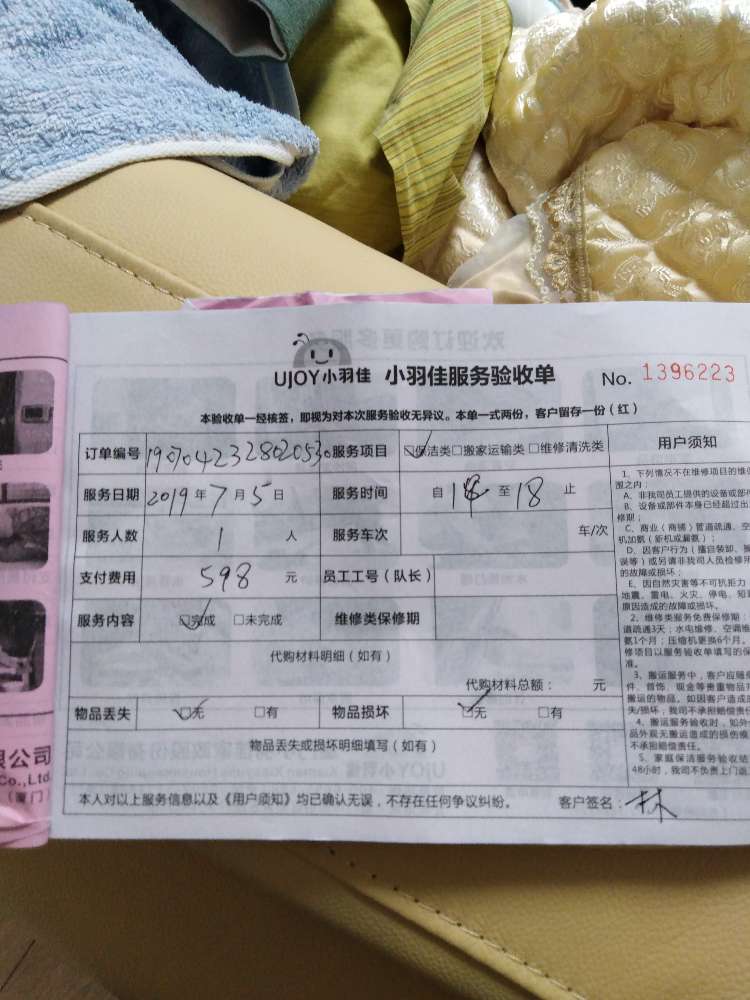 UJOY小羽佳 小羽佳服务验收单 No. 1396223
本验收单一经核签，即视为对本次服务验收无异议。本单一式两份，客户留存一份（红）
订单编号 服务项目 保洁类 搬家运输类 维修清洗类
服务日期 2019年7月5日 服务时间 自 至18止
服务人数 1 人 服务车次 车/次
支付费用 598 元 员工工号（队长）
服务内容 完成 未完成 维修类保修期
代购材料明细（如有）
代购材料总额： 元
物品丢失 无 有 物品损坏 无 有
物品丢失或损坏明细填写（如有）
本人对以上服务信息以及《用户须知》均已确认无误，不存在任何争议纠纷。 客户签名：林
用户须知
1、下列情况不在维修项目的维
围之内：
A、非我司员工提供的设备或部
B、设备或部件本身已经超过出
修期；
C、商业（商铺）管道疏通、空
机加氨（新机或漏氨）；
D、因客户行为（擅自装卸、
误等）或另请非我司人员检修
的故障或损坏；
E、因自然灾害等不可抗拒力
地震、雷电、火灾、停电、短
原因造成的故障或损坏。
2、维修类服务免费保修期：
道疏通3天；水电维修、空调维
氨1个月；压缩机更换6个月。
修项目以服务验收单填写的保
准。
3、搬运服务中，客户应随
件、首饰、现金等贵重物品
搬运的物品。如因客户造成
失/损坏，我司不承担赔偿责任
4、搬运服务验收时，如外
品外观无搬运造成的损伤痕
不承担赔偿责任。
5、家庭保洁服务验收结
48小时，我司不负责上门返
限公司
Co.,Ltd.
（厦门）